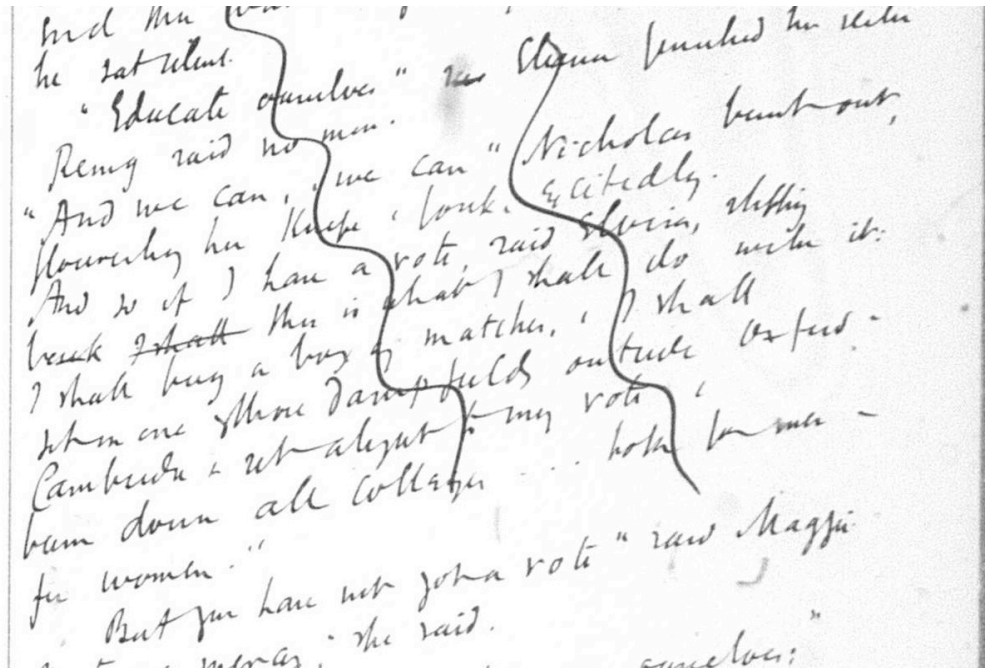 and the
he sat silent.
"Educate ourselves" Elvira finished the
Renny said no more.
"And we can, we can" Nicholas burst out,
flourishing her knife & fork. excitedly.
And so if I have a vote, said Elvira,
this is what I shall do with it:
I shall buy a box of matches, & I shall
one of those damp fields outside Oxford -
Cambridge & set alight to my vote &
burn down all colleges ... both for men -
for women."
But you have not got a vote" said Maggie
" she said.
ourselves:"